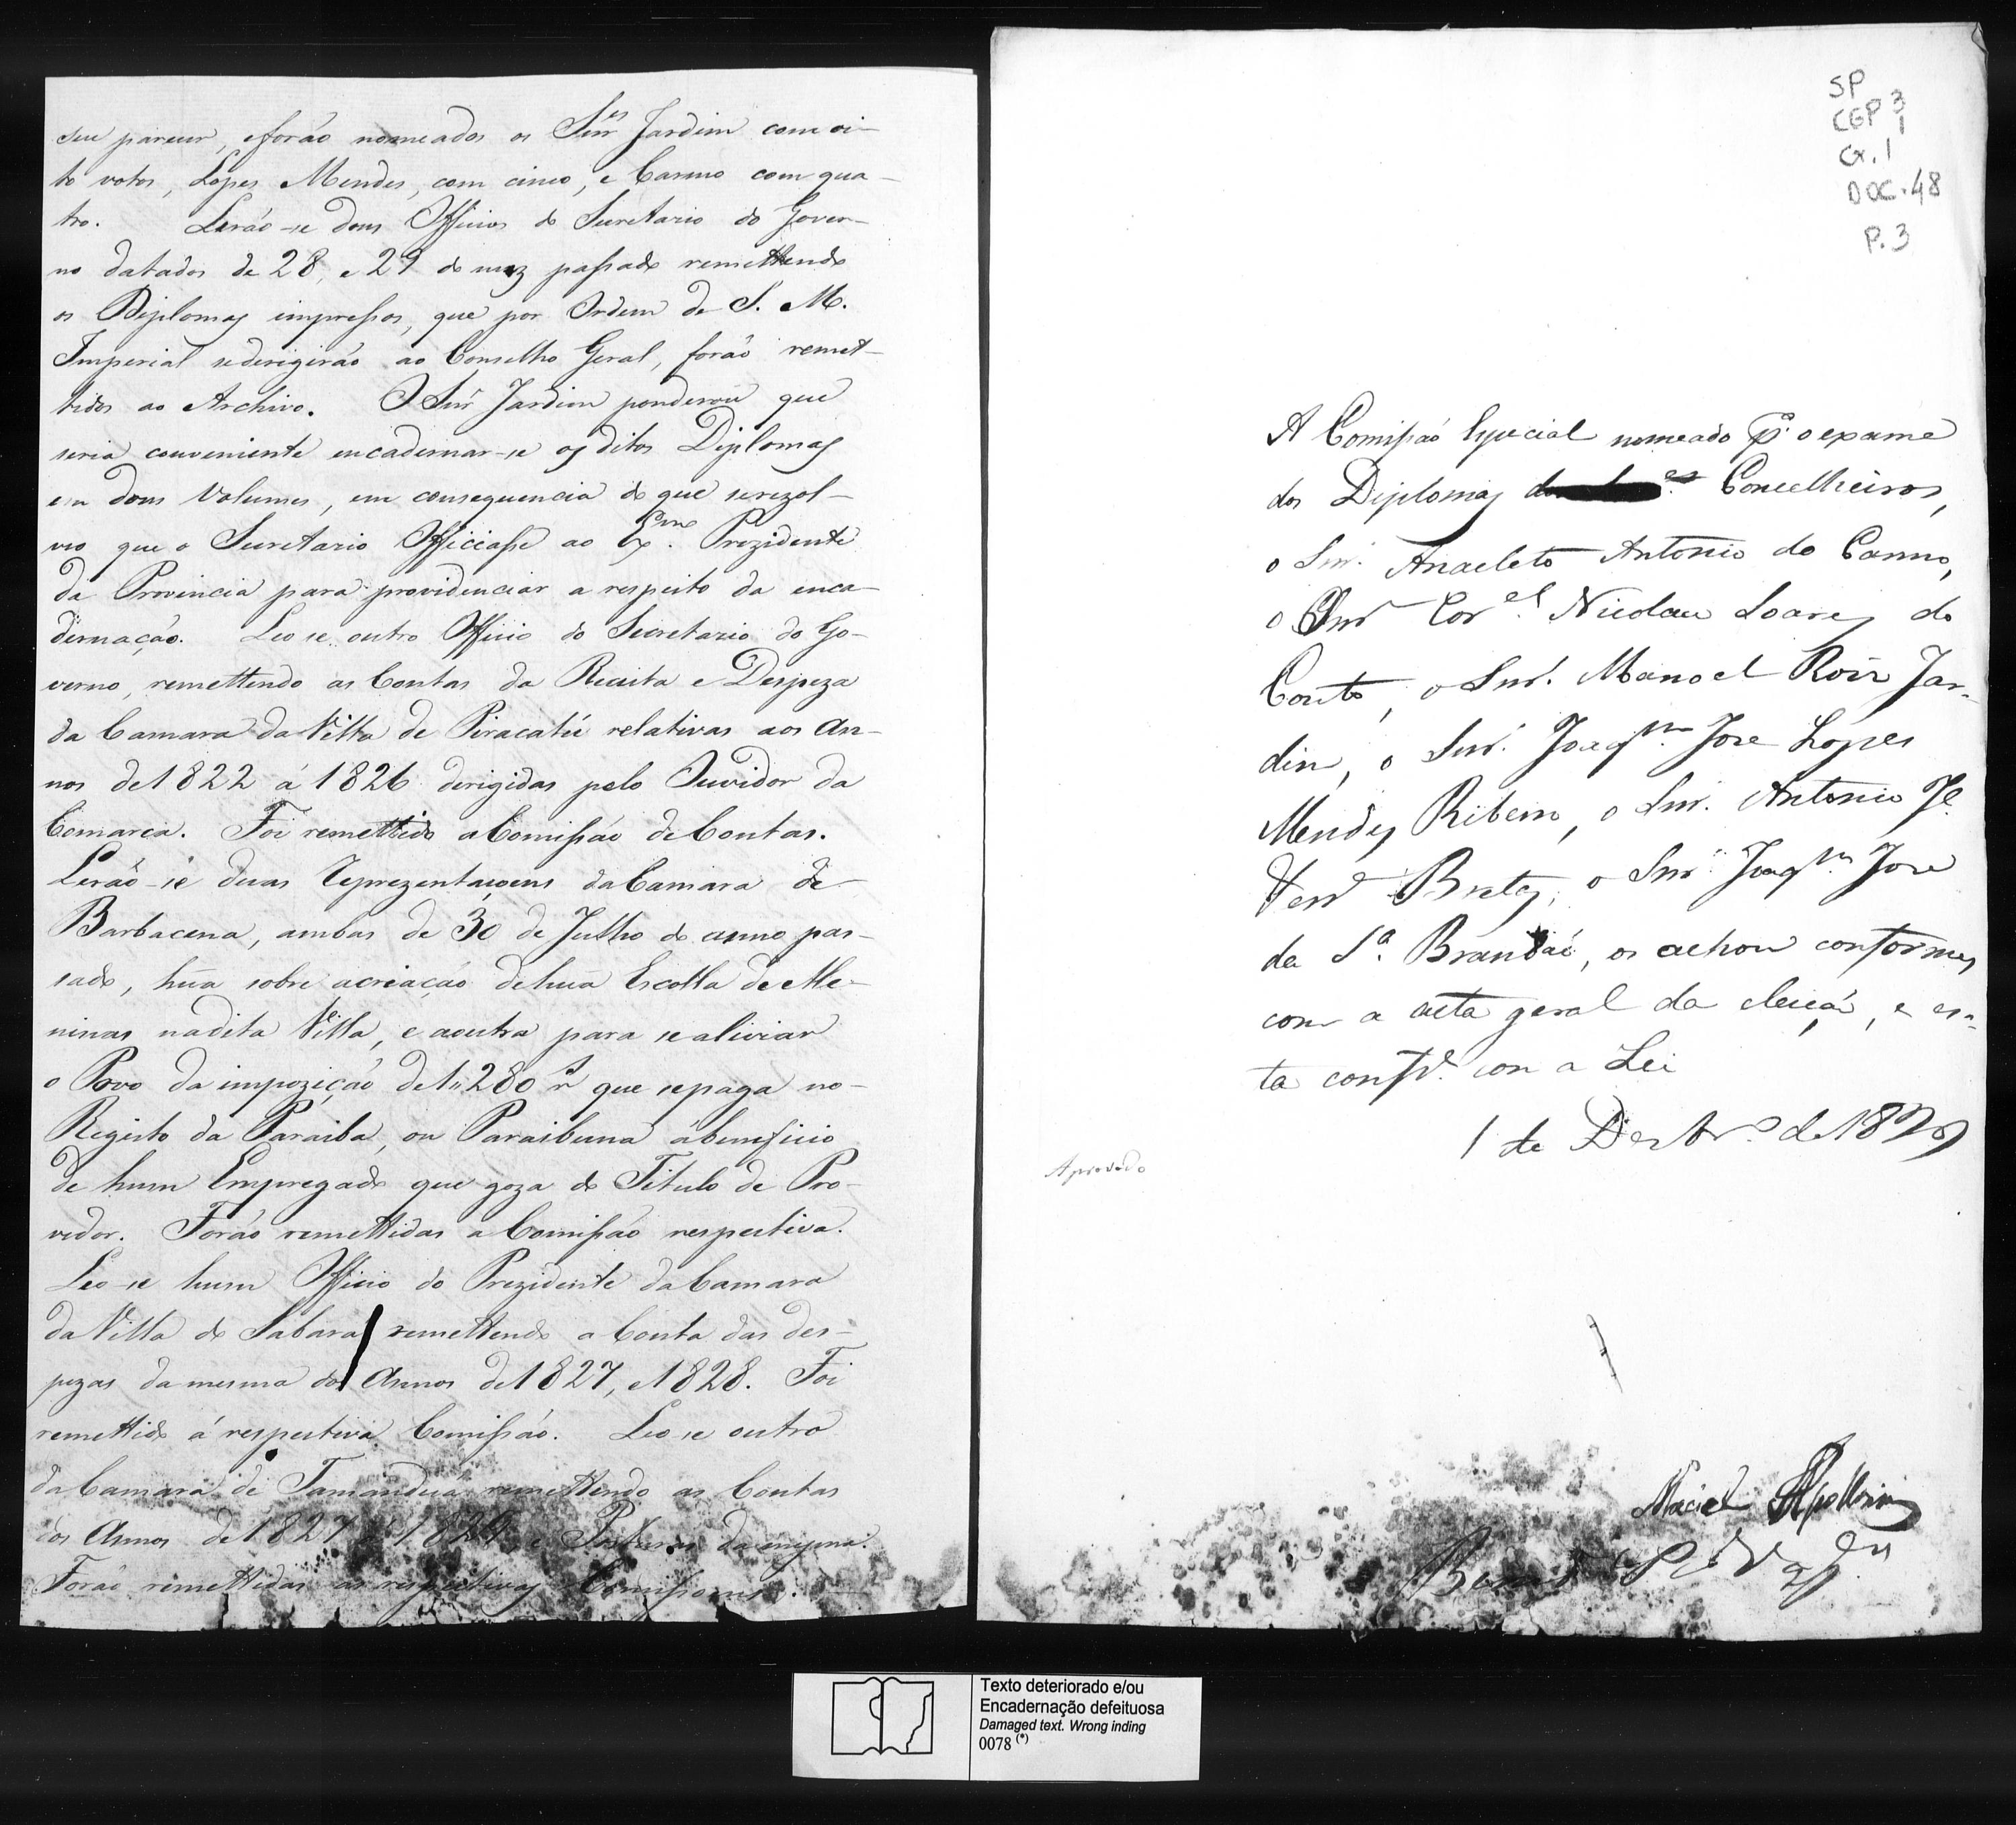 seu parecer, eforão nomeados os Snr.es Jardim com oi-
to votos, Lopes Mendes, com cinco, e Carmo com qua-
tro. Lerão-se dous Officios do Secretario do Gover-
no datados de 28, e 29 do mez passado remettendo
os Diplomas impressos, que por Ordem de S. M.
Imperial sedirigirão ao Conselho Geral, forão remet-
tidos ao Archivo. O Snr. Jardim ponderou que
seria conveniente encadernar-se os ditos Diplomas
em dous Volumes, em consequencia do que serezol-
veo que o Secretario Officiasse ao Ex.mo Prezidente
da Provincia para providenciar a respeito da enca-
dernação. Leo se outro Officio do Secretario do Go-
verno, remettendo as Contas da Receita e Despeza
da Camara da Villa de Piracatú relativas aos An-
nos de 1822 á 1826 dirigidas pelo Ouvidor da
Comarca. Foi remettido a Comissão de Contas.
Lerão-se duas Reprezentaçoens da Camara de
Barbacena, ambas de 30 de Julho do anno pas-
sado, hũa sobre acreação dehũa Escolla de Me-
ninas nadita Villa, e aoutra para se aliviar
o Povo da impozição de 1"280 rs que sepaga no-
Registo da Paraiba, ou Paraibuna abeneficio
de hum Empregado que goza do Titulo de Pro-
vedor. Forão remettidas a Comissão respectiva.
Leo-se hum Officio do Prezidente da Camara
da Villa do Sabará remettendo a Conta das des-
pezas da mesma dos Annos de 1827, e 1828. Foi
remettido á respectiva Comissão. Leo se outro
da Camara de Tamanduá remettendo as Contas
dos Annos de 1827 á 1829, e Posturas da mesma.
Forão remettidas as respectivas Comissoens.
SP
CGP 3
1
Cx. 1
DOC. 48
P. 3
A Comissaõ Especial nomeado p.a o exame
dos Diplomas es Concelheiros,
o Snr. Anacleto Antonio do Carmo,
o Snr Cor.el Nicolau Soares do
Couto, o Snr. Manoel Roiz Jar-
dim, o Snr. Joaq.m Jose Lopes
Mendes Ribeiro, o Snr. Antonio Je.
Bretas, o Snr. Joaq.m Jose
da S.a Brandaõ, os achou conformes
com a acta geral da eleiçaõ, e es-
ta conf.e con a Lei
1 de Dezbr.o de 1829
Aprovado
Maciel
Texto deteriorado e/ou
Encadernação defeituosa
Damaged text. Wrong inding
0078 (*)